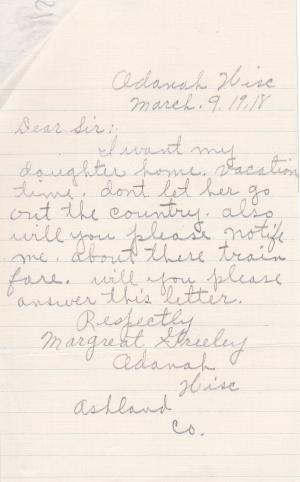 Odanah Wisc
March. 9. 1918
Dear Sir:.
I want my
doughter home. vacation
time. dont let her go
out the country. also
will you please notife
me. about there train
fare. will you please
answer this letter.
Respectly
Margreat Greeley
Odanah
Wisc
Ashland
Co.